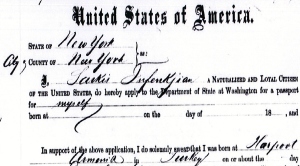 United States of America.
STATE OF New York
City COUNTY OF New York } ss:
I, Sarkis A NATURALIZED AND LOYAL CITIZEN
OF THE UNITED STATES, do hereby apply to the Department of State at Washington for a passport
for myself
born at on the day of 18 , and
In support of the above application, I do solemnly swear that I was born at Harpoot
Armenia in Turkey on or about the day